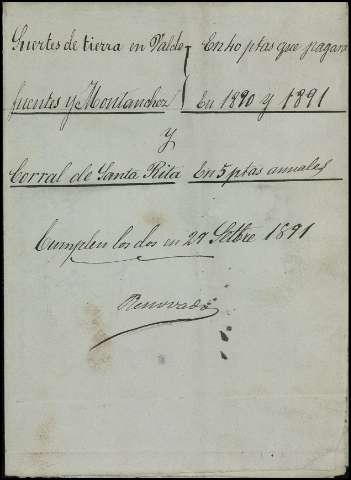 Suertes de tierra en Valde } En 40 ptas que pagara
fuentes y Montanchez } En 1890 y 1891
y
Corral de Santa Rita En 5 ptas anuales
Cumplen los dos en 29 Setbre 1891
Renovado